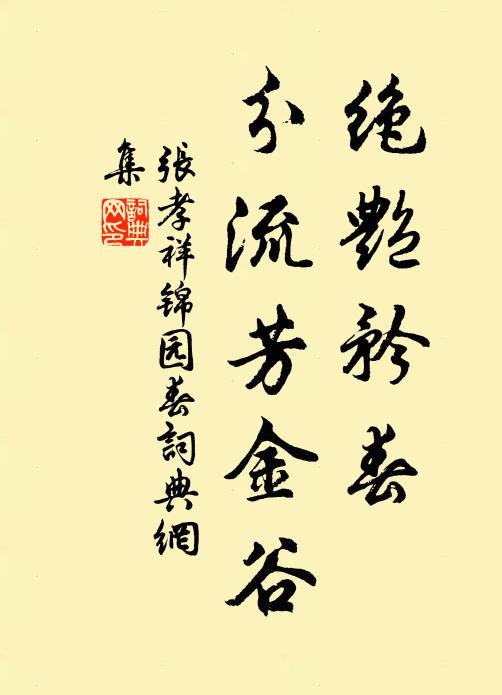 絶艷矜春
分流芳金谷
張孝祥锦园春詞典網
集
詞典
网印